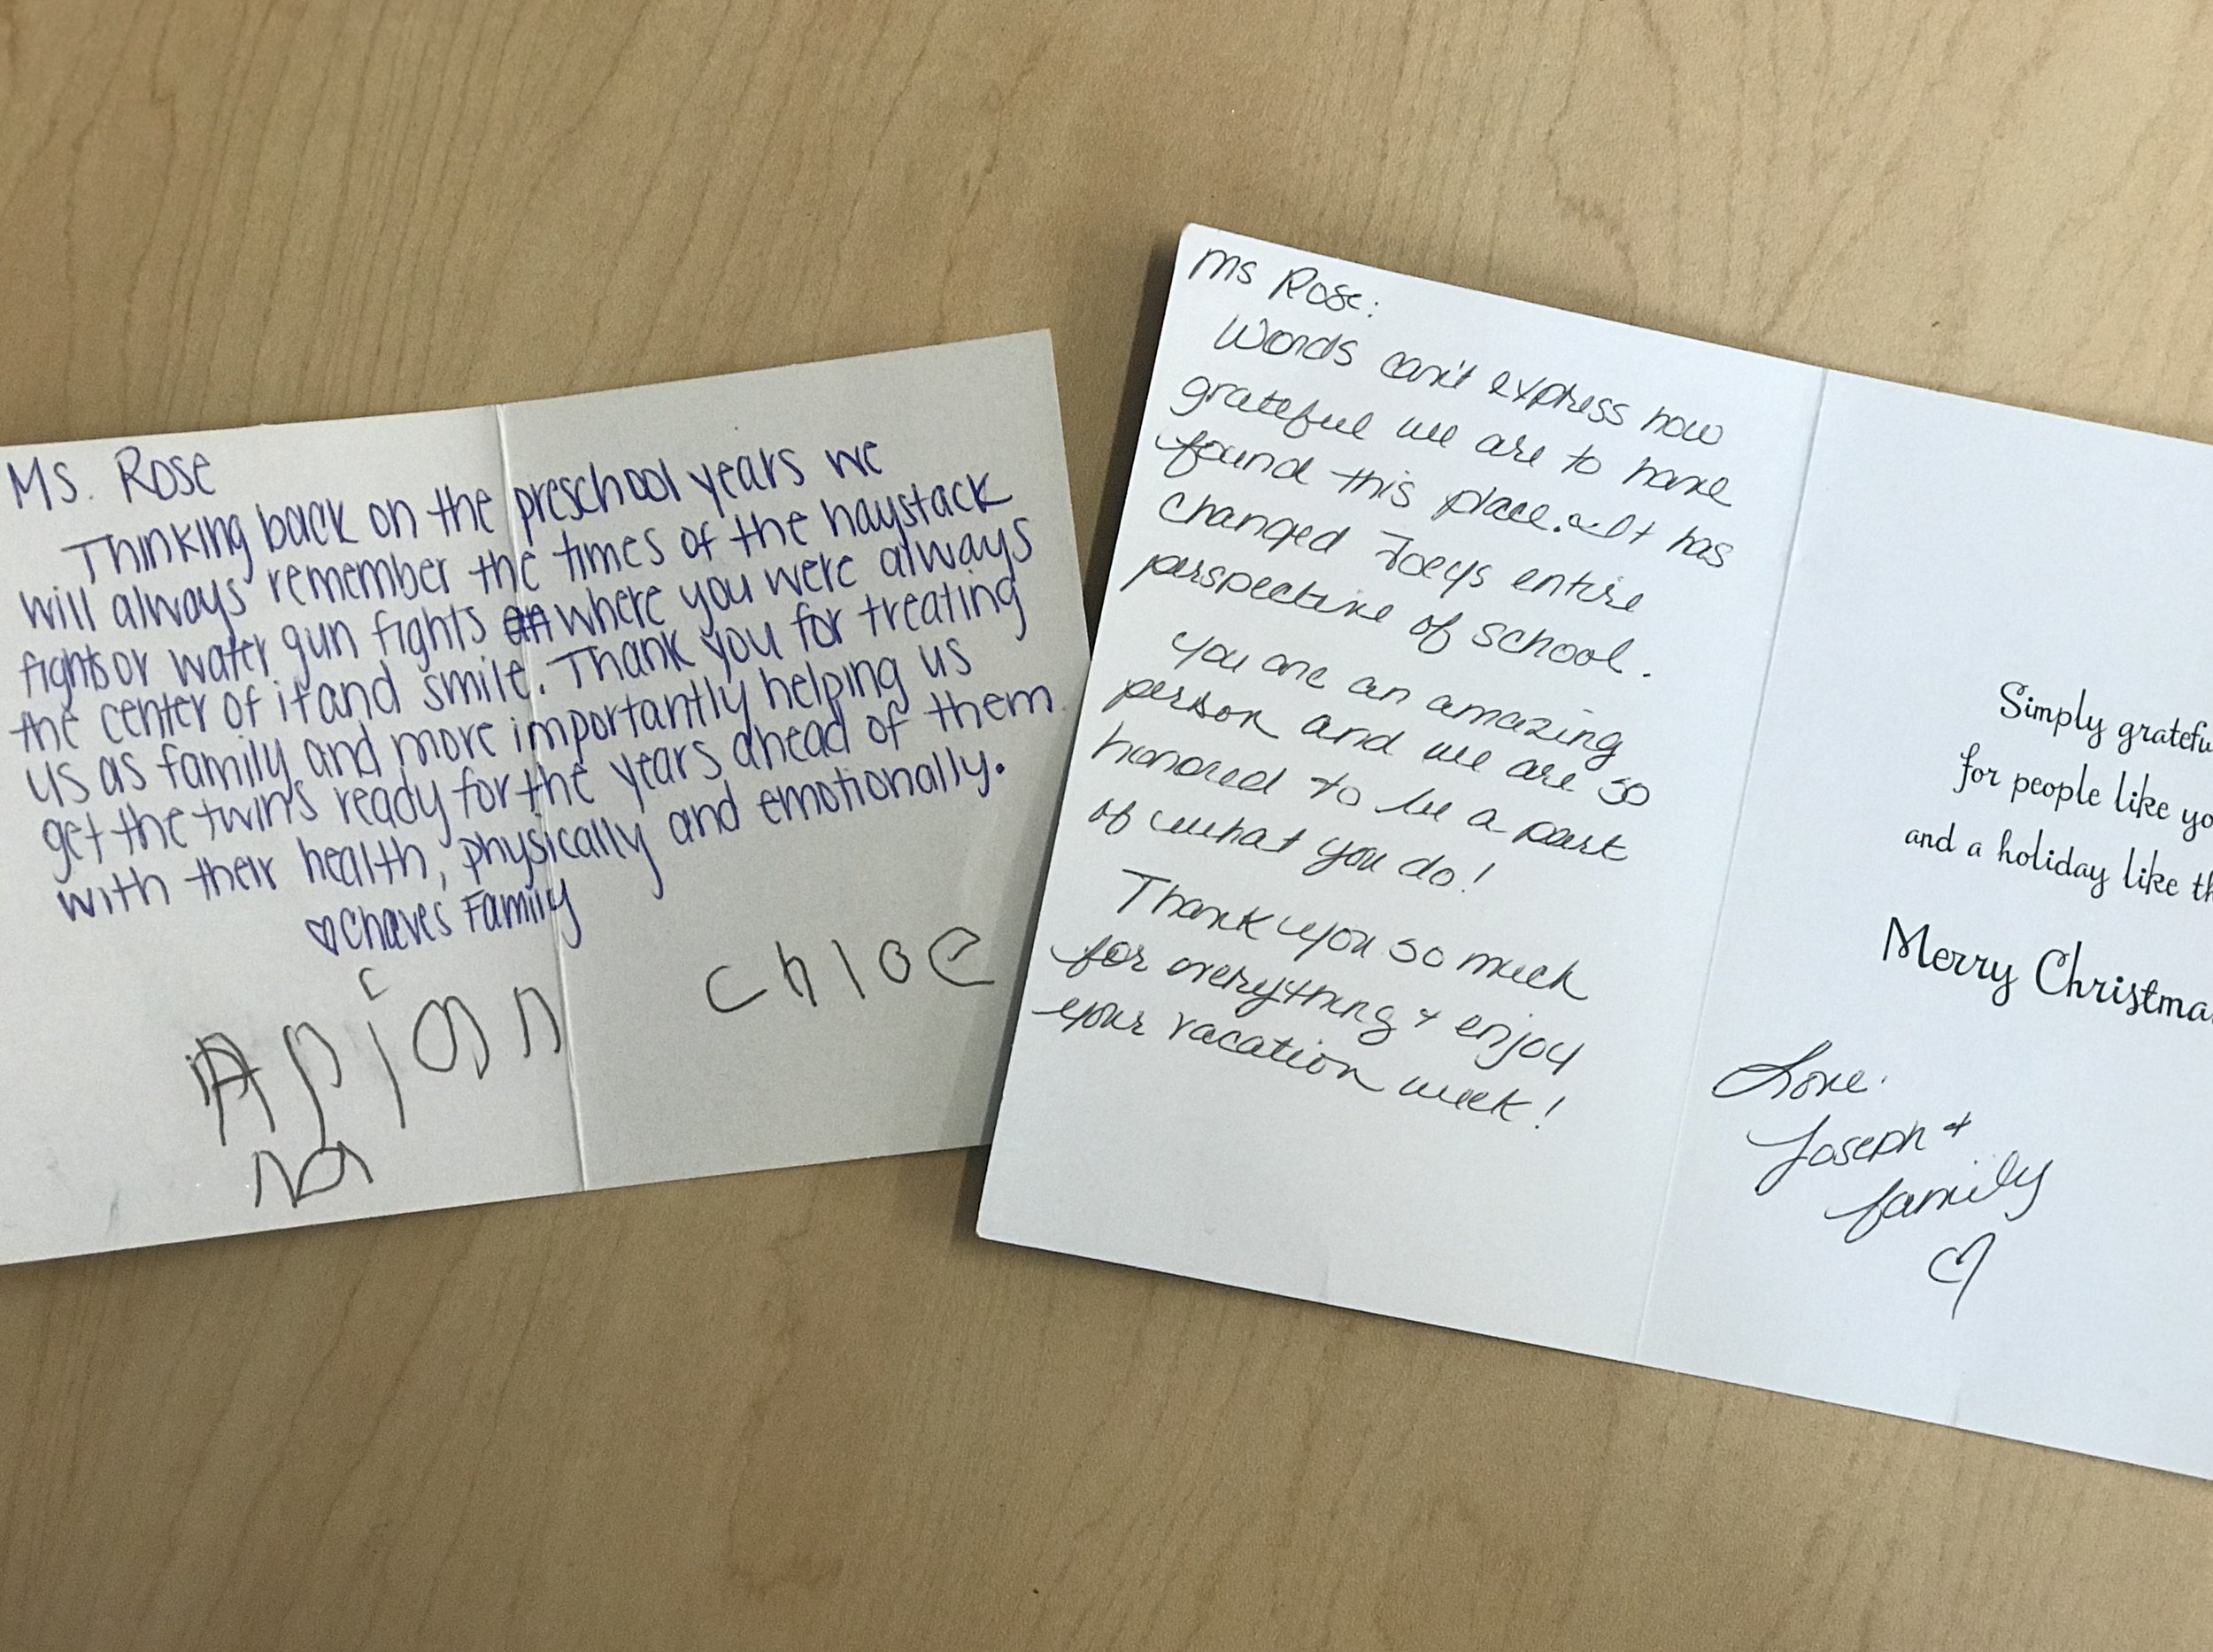 Ms. Rose
Thinking back on the preschool years we
will always remember the times of the haystack
fights or water gun fights where you were always
the center of it and smile. Thank you for treating
us as family and more importantly helping us
get the twins ready for the years ahead of them
with their health, physically and emotionally.
♡Chaves Family
Chloe
Ms Rose:
Words can't express how
grateful we are to have
found this place. It has
changed Joeys entire
perspective of school.
You are an amazing
person and we are so
honored to be a part
of what you do!
Thank you so much
for everything + enjoy
your vacation week!
Simply gratefu
for people like yo
and a holiday like th
Merry Christma
Love.
Joseph +
family
♡